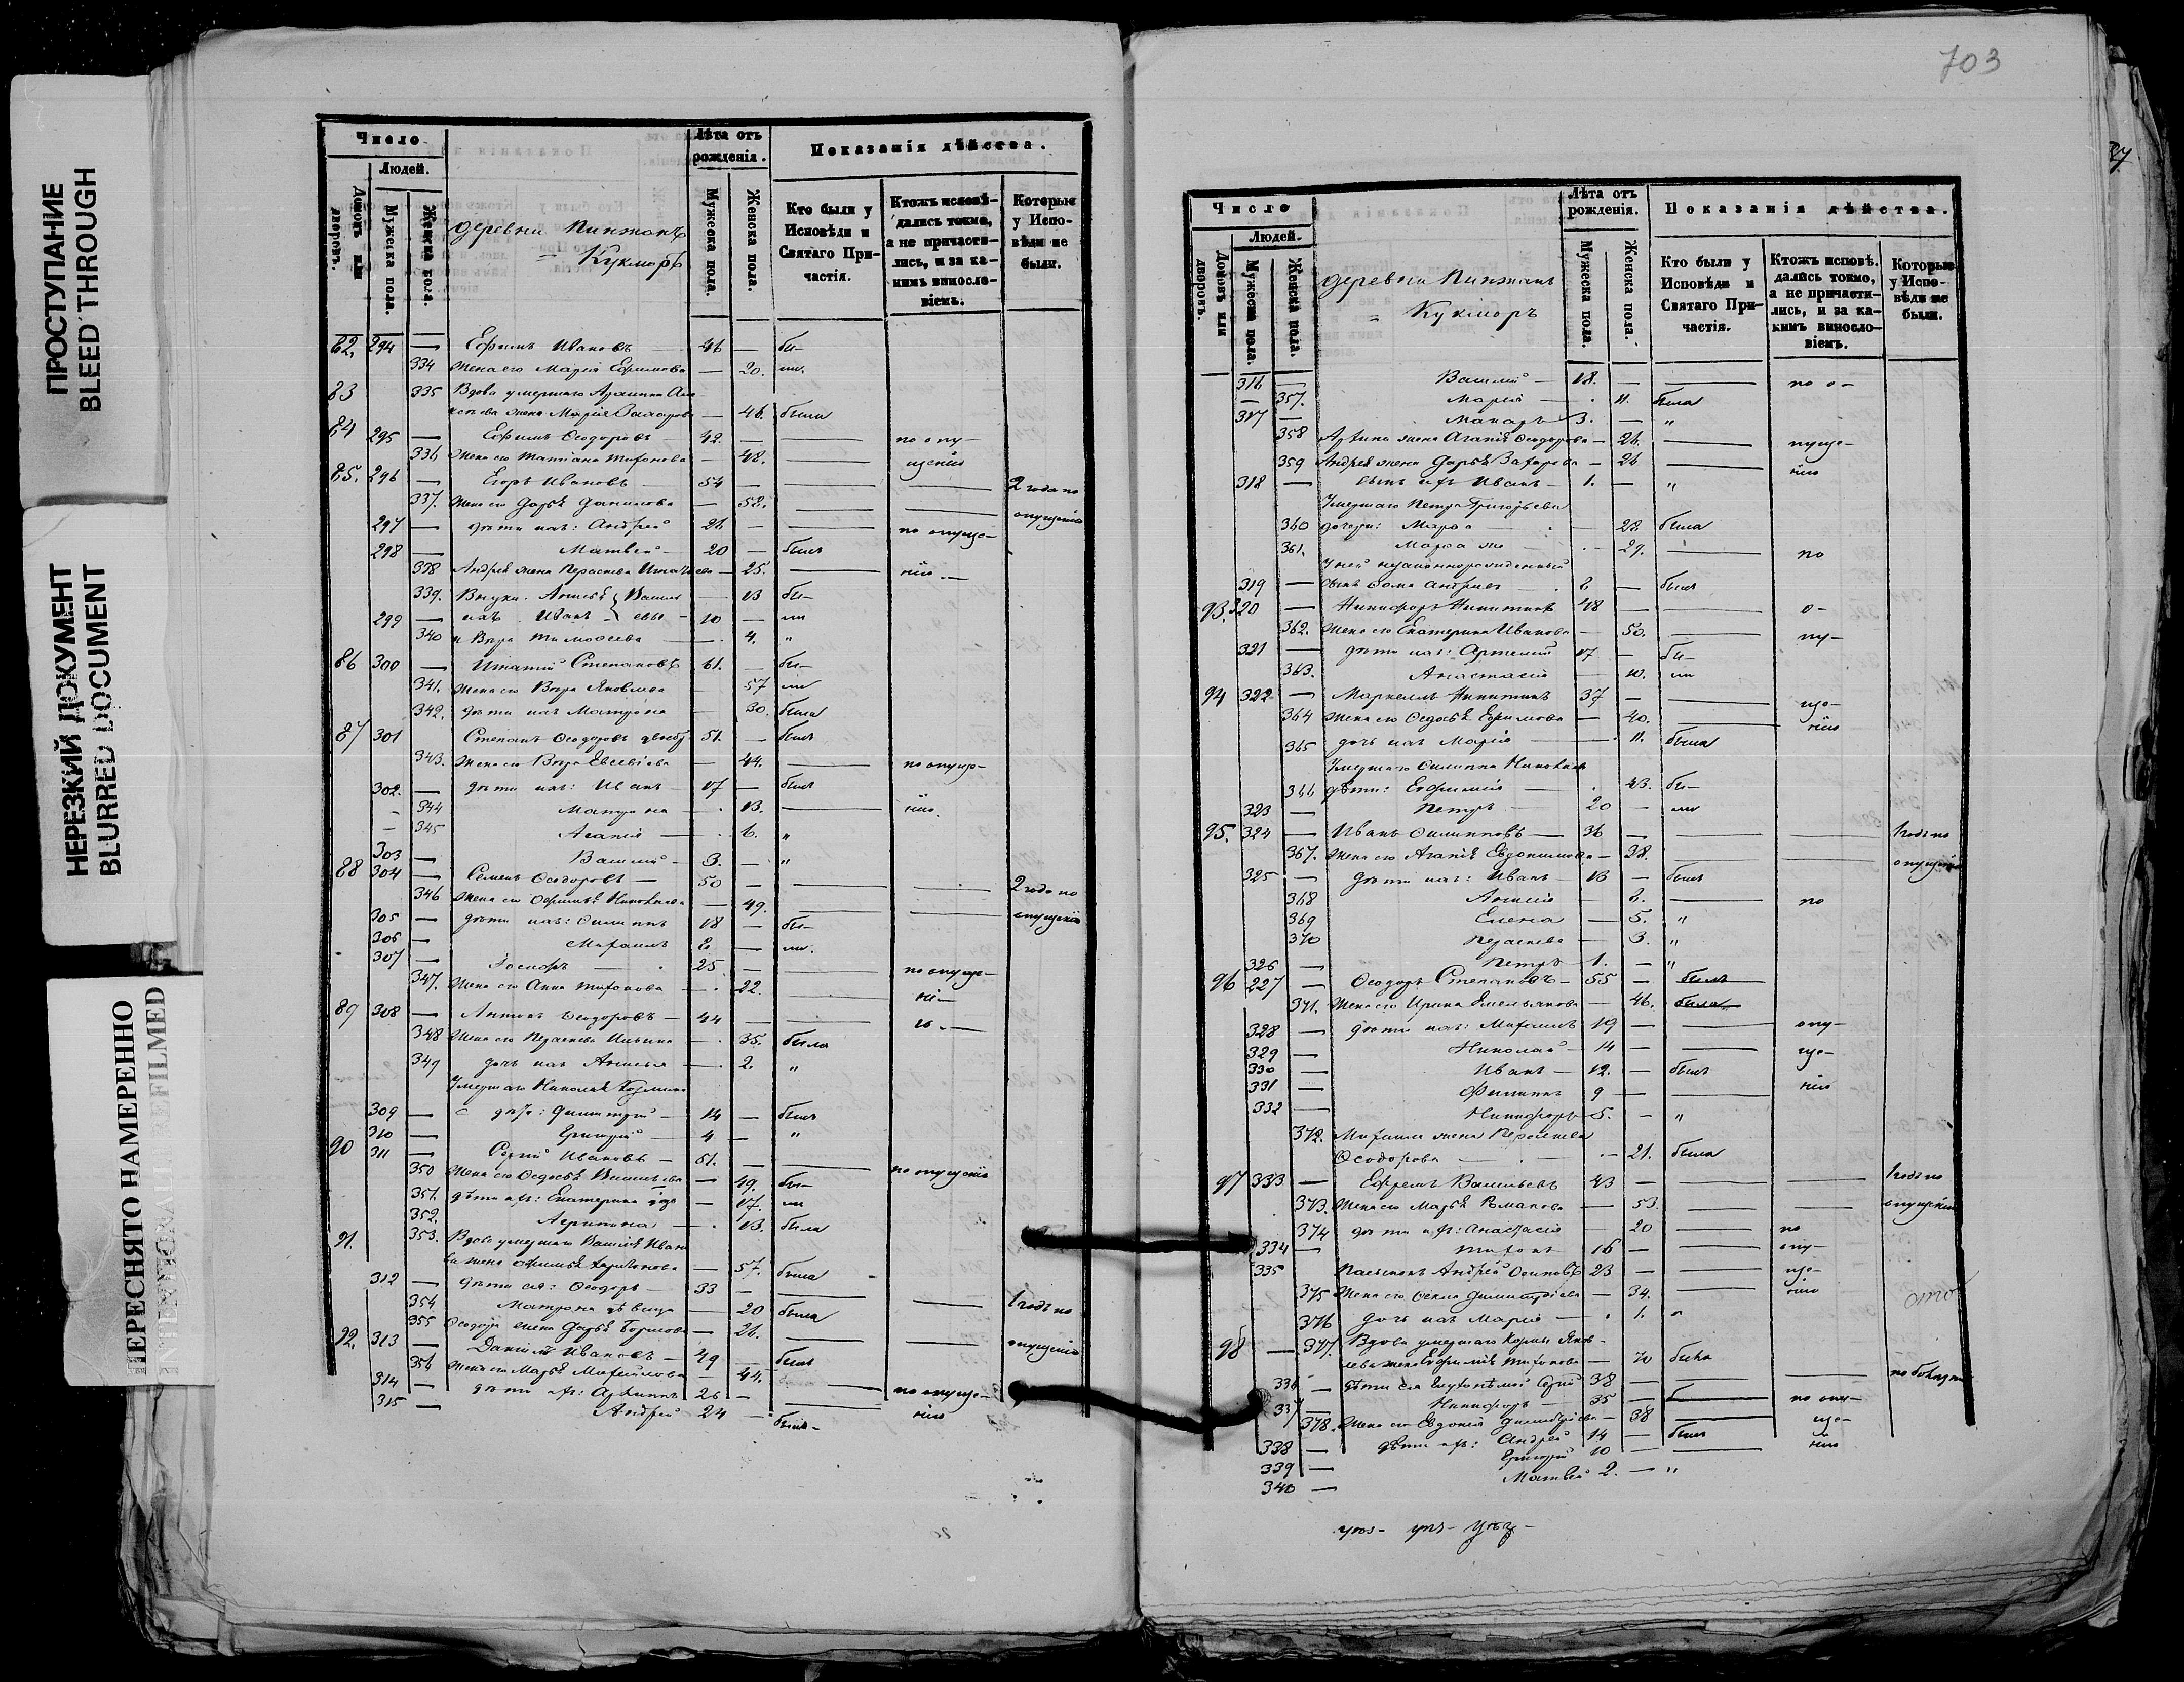 ПРОСТУПАНИЕ
BLEED THROUGH
НЕРЕЗКИЙ ДОКУМЕНТ
BLURRED DOCUMENT
ПЕРЕСНЯТО НАМЕРЕННО
INTENTIONALLY REFILMED
Число
Людей.
Домовъ или дворовъ.
Мужеска пола.
Женска пола.
деревни Пинжанъ
= Кукморъ
Лѣта отъ рожденія.
Мужеска пола.
Женска пола.
Показанія дѣйства.
Кто были у Исповѣди и Святаго Причастія.
Ктожъ исповѣдались токмо, а не причастились, и за какимъ винословіемъ.
Которые у Исповѣди не были.
82. 294 — Ефимъ Ивановъ 46 — бы-
334 Жена его Марія Ефимова — 20. ли.
83 335 Вдова умершаго Архипа Але-
ксѣева жена Марія Захарова — 46. была
84 295 — Ефимъ Ѳеодоровъ 42. — — по опу-
336 Жена его Татіана Тихонова — 48. — щенію
85. 296 — Егоръ Ивановъ 54 — — — 2 года по
337. Жена его Дарья Данилова — 52. — — опущенію
297 — дѣти ихъ: Андрей 26 — — по опуще-
298 — Матвей 20 — былъ
338 Андрея жена Параскева Игнатьева — 25. — нію.
339. Внуки: Анисья Васил- 13 бы-
299 — ихъ Иванъ евы 10 — ли
340 и Вѣра Тимоѳеева — 4. "
86 300 — Игнатій Степановъ 61. — бы-
341. Жена его Вѣра Яковлева — 57 ли
342. дѣти ихъ Матрона — 30. была
87 301 Степанъ Ѳеодоровъ 51. — былъ
343. Жена его Вѣра Евсевіева — 44. — по опуще-
302. — дѣти ихъ: Иванъ 17 — былъ
344 Матрона — 13. — нію.
345 Агапія — 6. "
303 — Василій 3. — "
88 304 — Семенъ Ѳеодоровъ — 50 — — — 2 года по
346 Жена его Ефимья Николаева — 49. — — опущенію
305 — дѣти ихъ: Филиппъ 18 — бы-
306 — Михаилъ — ли.
307 — 25 — — по опуще-
347. Жена его Анна Тихонова — 22. — ні-
89 308 — Антонъ Ѳеодоровъ — 44 — — ю. —
348 Жена его Параскева Ильина — 35. была
349 дочь ихъ Анисья — 2. "
Умершаго Николая
309 — дѣти: Димитрій — 14 — былъ
310 — Григорій — 4 — "
90 311 — Сергій Ивановъ — 61. — — по опущенію
350 Жена его Ѳедосья Васильева — 49. бы-
351. дѣти ихъ: Екатерина — 17. ли
352. Агрипина — 13. была
91. 353. Вдова умершаго Василія Ивано-
ва жена Ефимья Харитонова — 57. была
312 — дѣти ея: Ѳеодоръ — 33 — — — 1 годъ по
354 Матрона дѣвица — 20 была
355 Ѳеодора жена Дарья Борисова — 26. — — опущенію
92. 313 — Даніилъ Ивановъ — 49 — былъ
356 Жена его Марья Михайлова — 44. — по опуще-
314 — дѣти ихъ: Архипъ 26 — — нію
315 — Андрей 24 — былъ
703
27
Число
Людей.
Домовъ или дворовъ.
Мужеска пола.
Женска пола.
деревни Пинжанъ
= Кукморъ
Лѣта отъ рожденія.
Мужеска пола.
Женска пола.
Показанія дѣйства.
Кто были у Исповѣди и Святаго Причастія.
Ктожъ исповѣдались токмо, а не причастились, и за какимъ винословіемъ.
Которые у Исповѣди не были.
316 — Василій — 18. — — по о-
357. Марія — 11. была
317 — Макаръ — 3. — "
358 Архипа жена Агапія Ѳеодорова — 26. — пуще-
359 Андрея жена Дарья Захарова — 26 — нію
318 — сынъ ихъ Иванъ — 1. — "
Умершаго Петра Григорьева
360 дочери: Марѳа — 28 была
361. Марѳа же — 29. — по
У ней незаконнорожденный
319 — сынъ Ѳома Андреевъ — былъ
93. 320 — Никифоръ Никитинъ 48 — — о-
362. Жена его Екатерина Иванова — 50. — пу-
321 — дѣти ихъ: Артемій 17 — бы-
363. Анастасія — 10. ли
94 322 — Маркелъ Никитинъ 37 — — ще-
364 Жена его Ѳедосья Ефимова — 40. — нію
365 дочь ихъ Марія — 11. была
Умершаго Филиппа Николаева
366 дѣти: Евфимія — 23. бы-
323 — Петръ — 20 — ли
95. 324 — Иванъ Филипповъ — 36 — — — 1 годъ по
367. Жена его Агапія Евдокимова — 38. — — опущенію
325 — дѣти ихъ: Иванъ — 13 — былъ
368 Анисія — 8. — по
369 Елена — 5. "
370 Параскева — 3. "
326 — Петръ — 1. — "
96 227 — Ѳеодоръ Степановъ — 55 — былъ
371. Жена его Ирина Емельянова — 46. была
328 — дѣти ихъ: Михаилъ 19 — — опу-
329 — Николай — 14 — — ще-
330 — Иванъ — 12. — былъ
331 — Филиппъ 9 — — нію
332 — Никифоръ 5. — "
372. Михаила жена Параскева
Ѳеодорова — 21. была
97 333 — Ефремъ Васильевъ 43 — — — 1 годъ по
373. Жена его Марья Романова — 53. — — опущенію
374 дѣти ихъ: Анастасія 20 — по
334 — Тихонъ 16 — — опу-
335 Пасынокъ Андрей Осиповъ 23 — — ще-
375 Жена его Ѳекла Димитріева — 34. — нію
376 дочь ихъ Марія — 1. "
98 — 377. Вдова умершаго Козмы Яков-
лева жена Евфимія Тихонова — 70 была
336 — дѣти ея глухонѣмой Сергій 38 — — — по болезни
337 — Никифоръ — 35 — — по опу-
378. Жена его Евдокія Димитріева — 38 — ще-
338 — дѣти ихъ: Андрей 14 — былъ нію
339 — Григорій 10 — —
340 — Матвей 2. — "